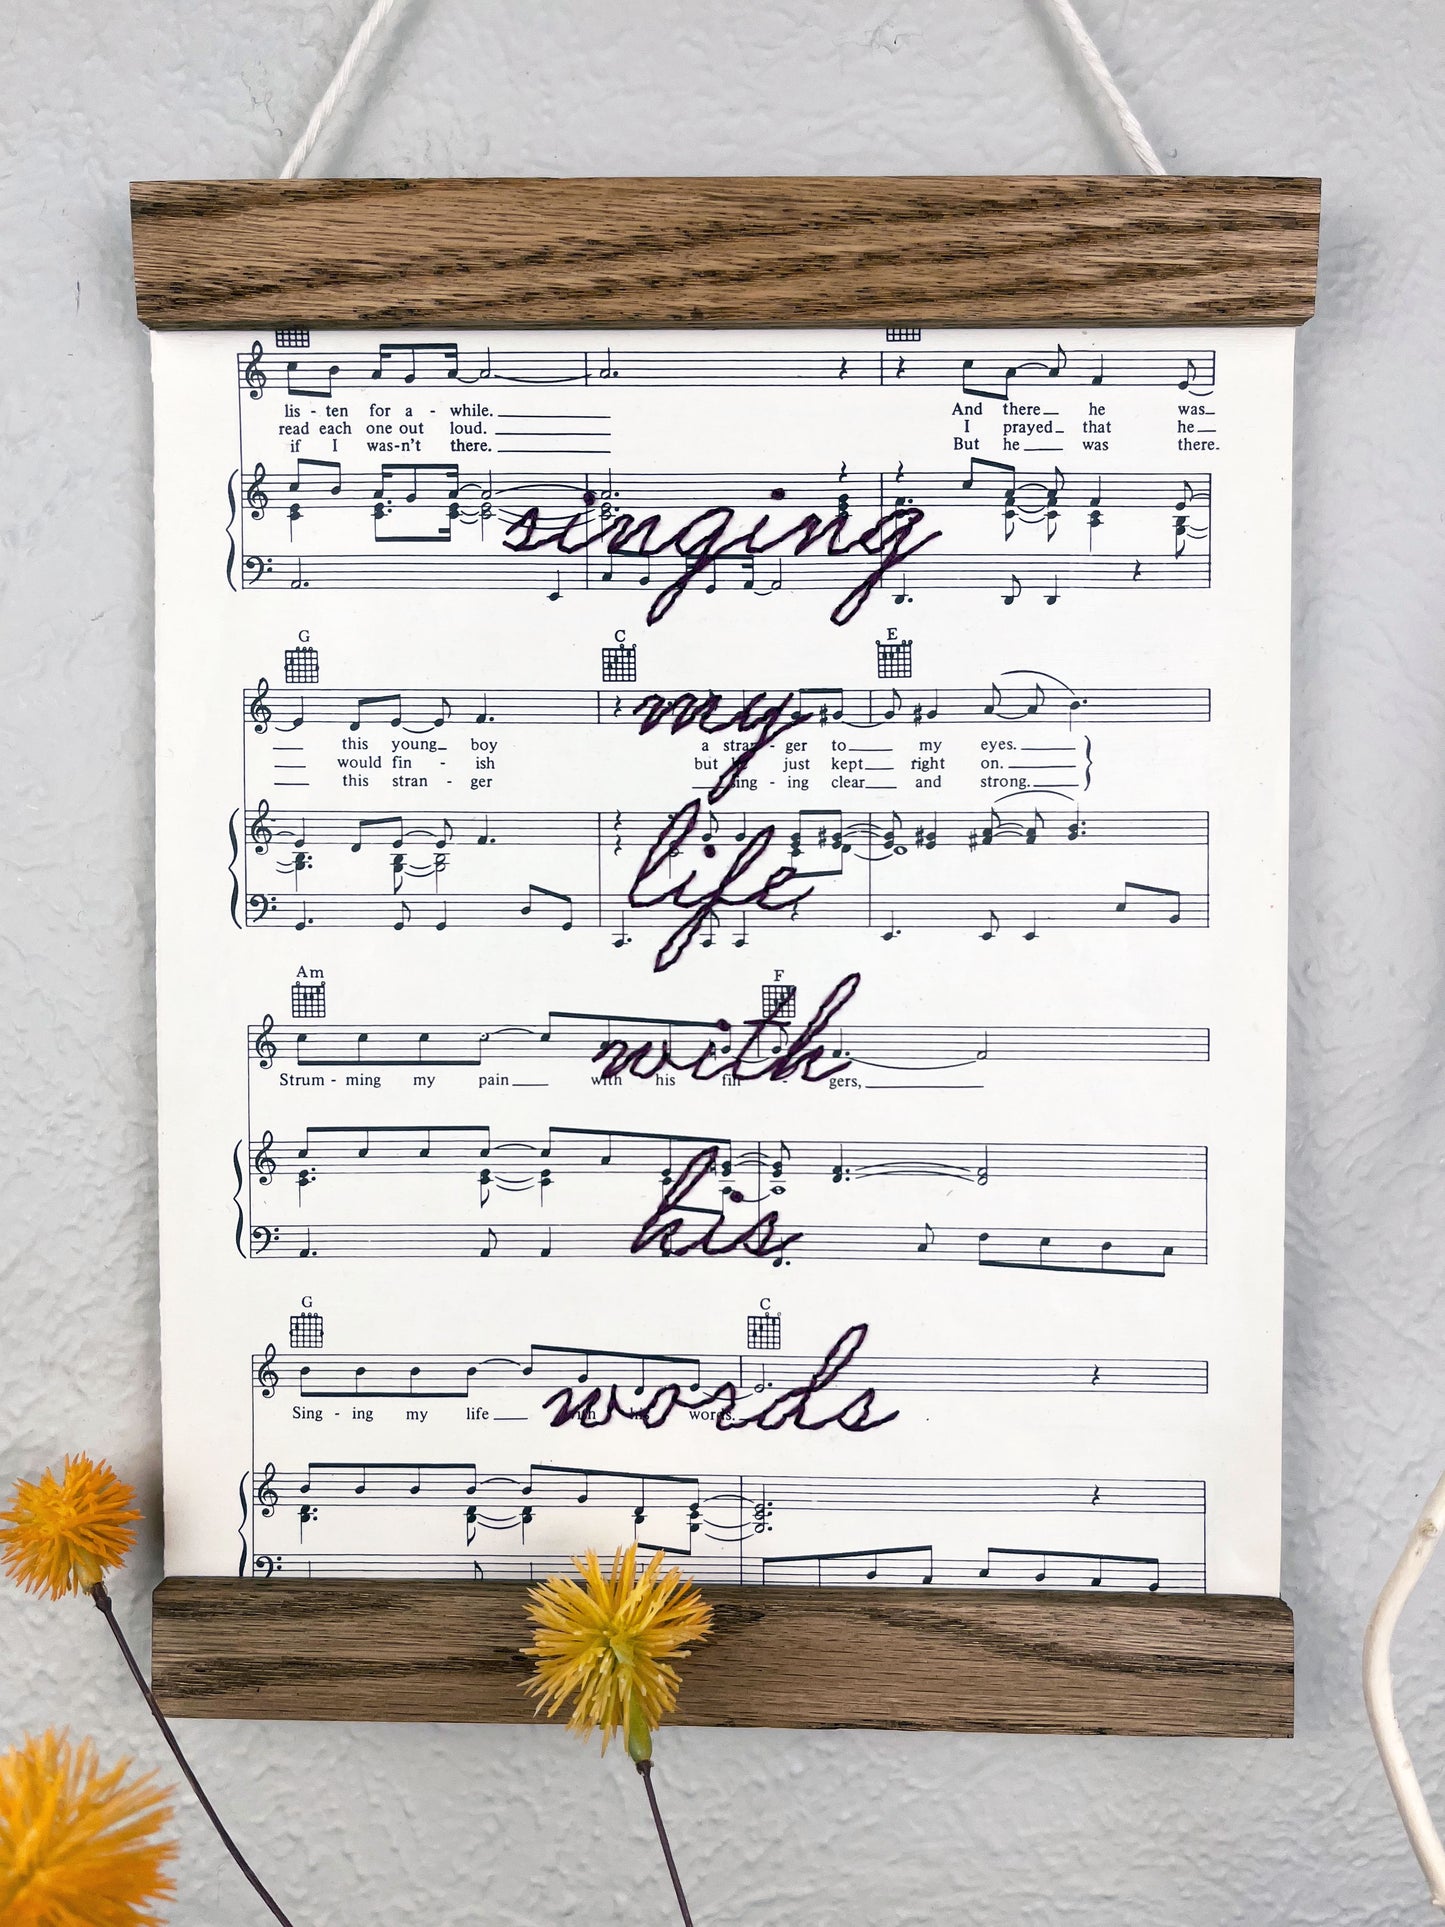 lis - ten for a - while. And there he was
read each one out loud. I prayed that he
if I was-n't there. But he was there.
singing
G C E
my
this young boy a stran - ger to my eyes.
would fin - ish but he just kept right on.
this stran - ger sing - ing clear and strong.
life
Am F
with
Strum - ming my pain with his fin - gers,
his
G C
words
Sing - ing my life with his words.